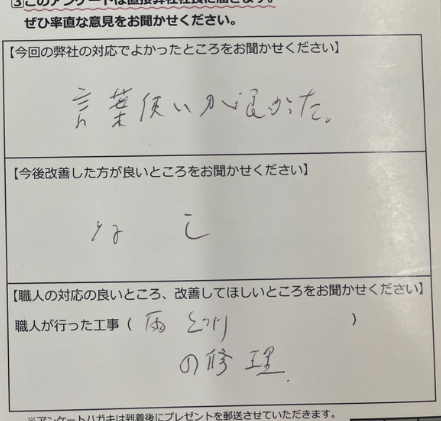 ③このアンケートは直接弊社社長に届きます。
ぜひ率直な意見をお聞かせください。
【今回の弊社の対応でよかったところをお聞かせください】
言葉使いが良かった。
【今後改善した方が良いところをお聞かせください】
なし
【職人の対応の良いところ、改善してほしいところをお聞かせください】
職人が行った工事（雨とい）
の修理
※アンケートハガキは到着後にプレゼントを郵送させていただきます。